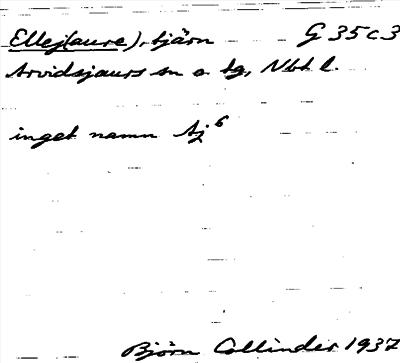 Ellej(aure), tjärn G 35 c 3
Arvidsjaurs sn o tg, Nbt l.
inget namn Aj 6
Björn Collinder 1937